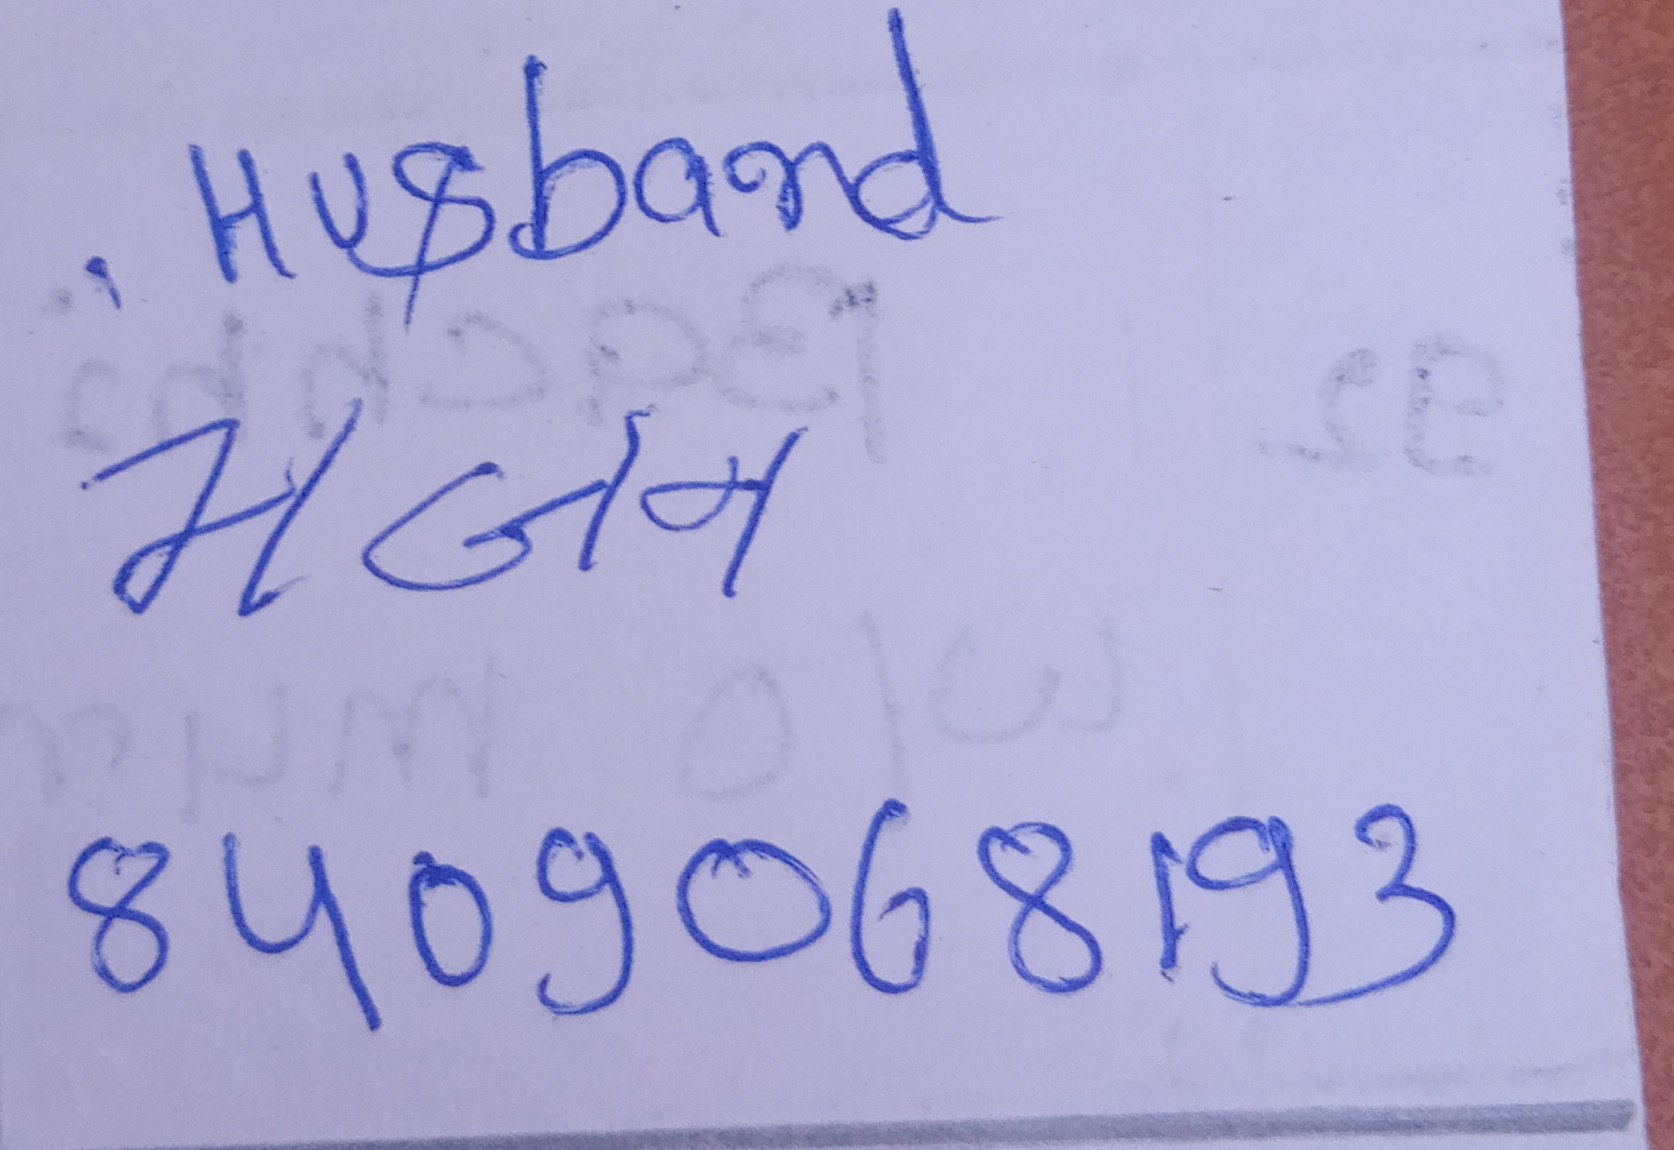 Husband
भजन
8409068193